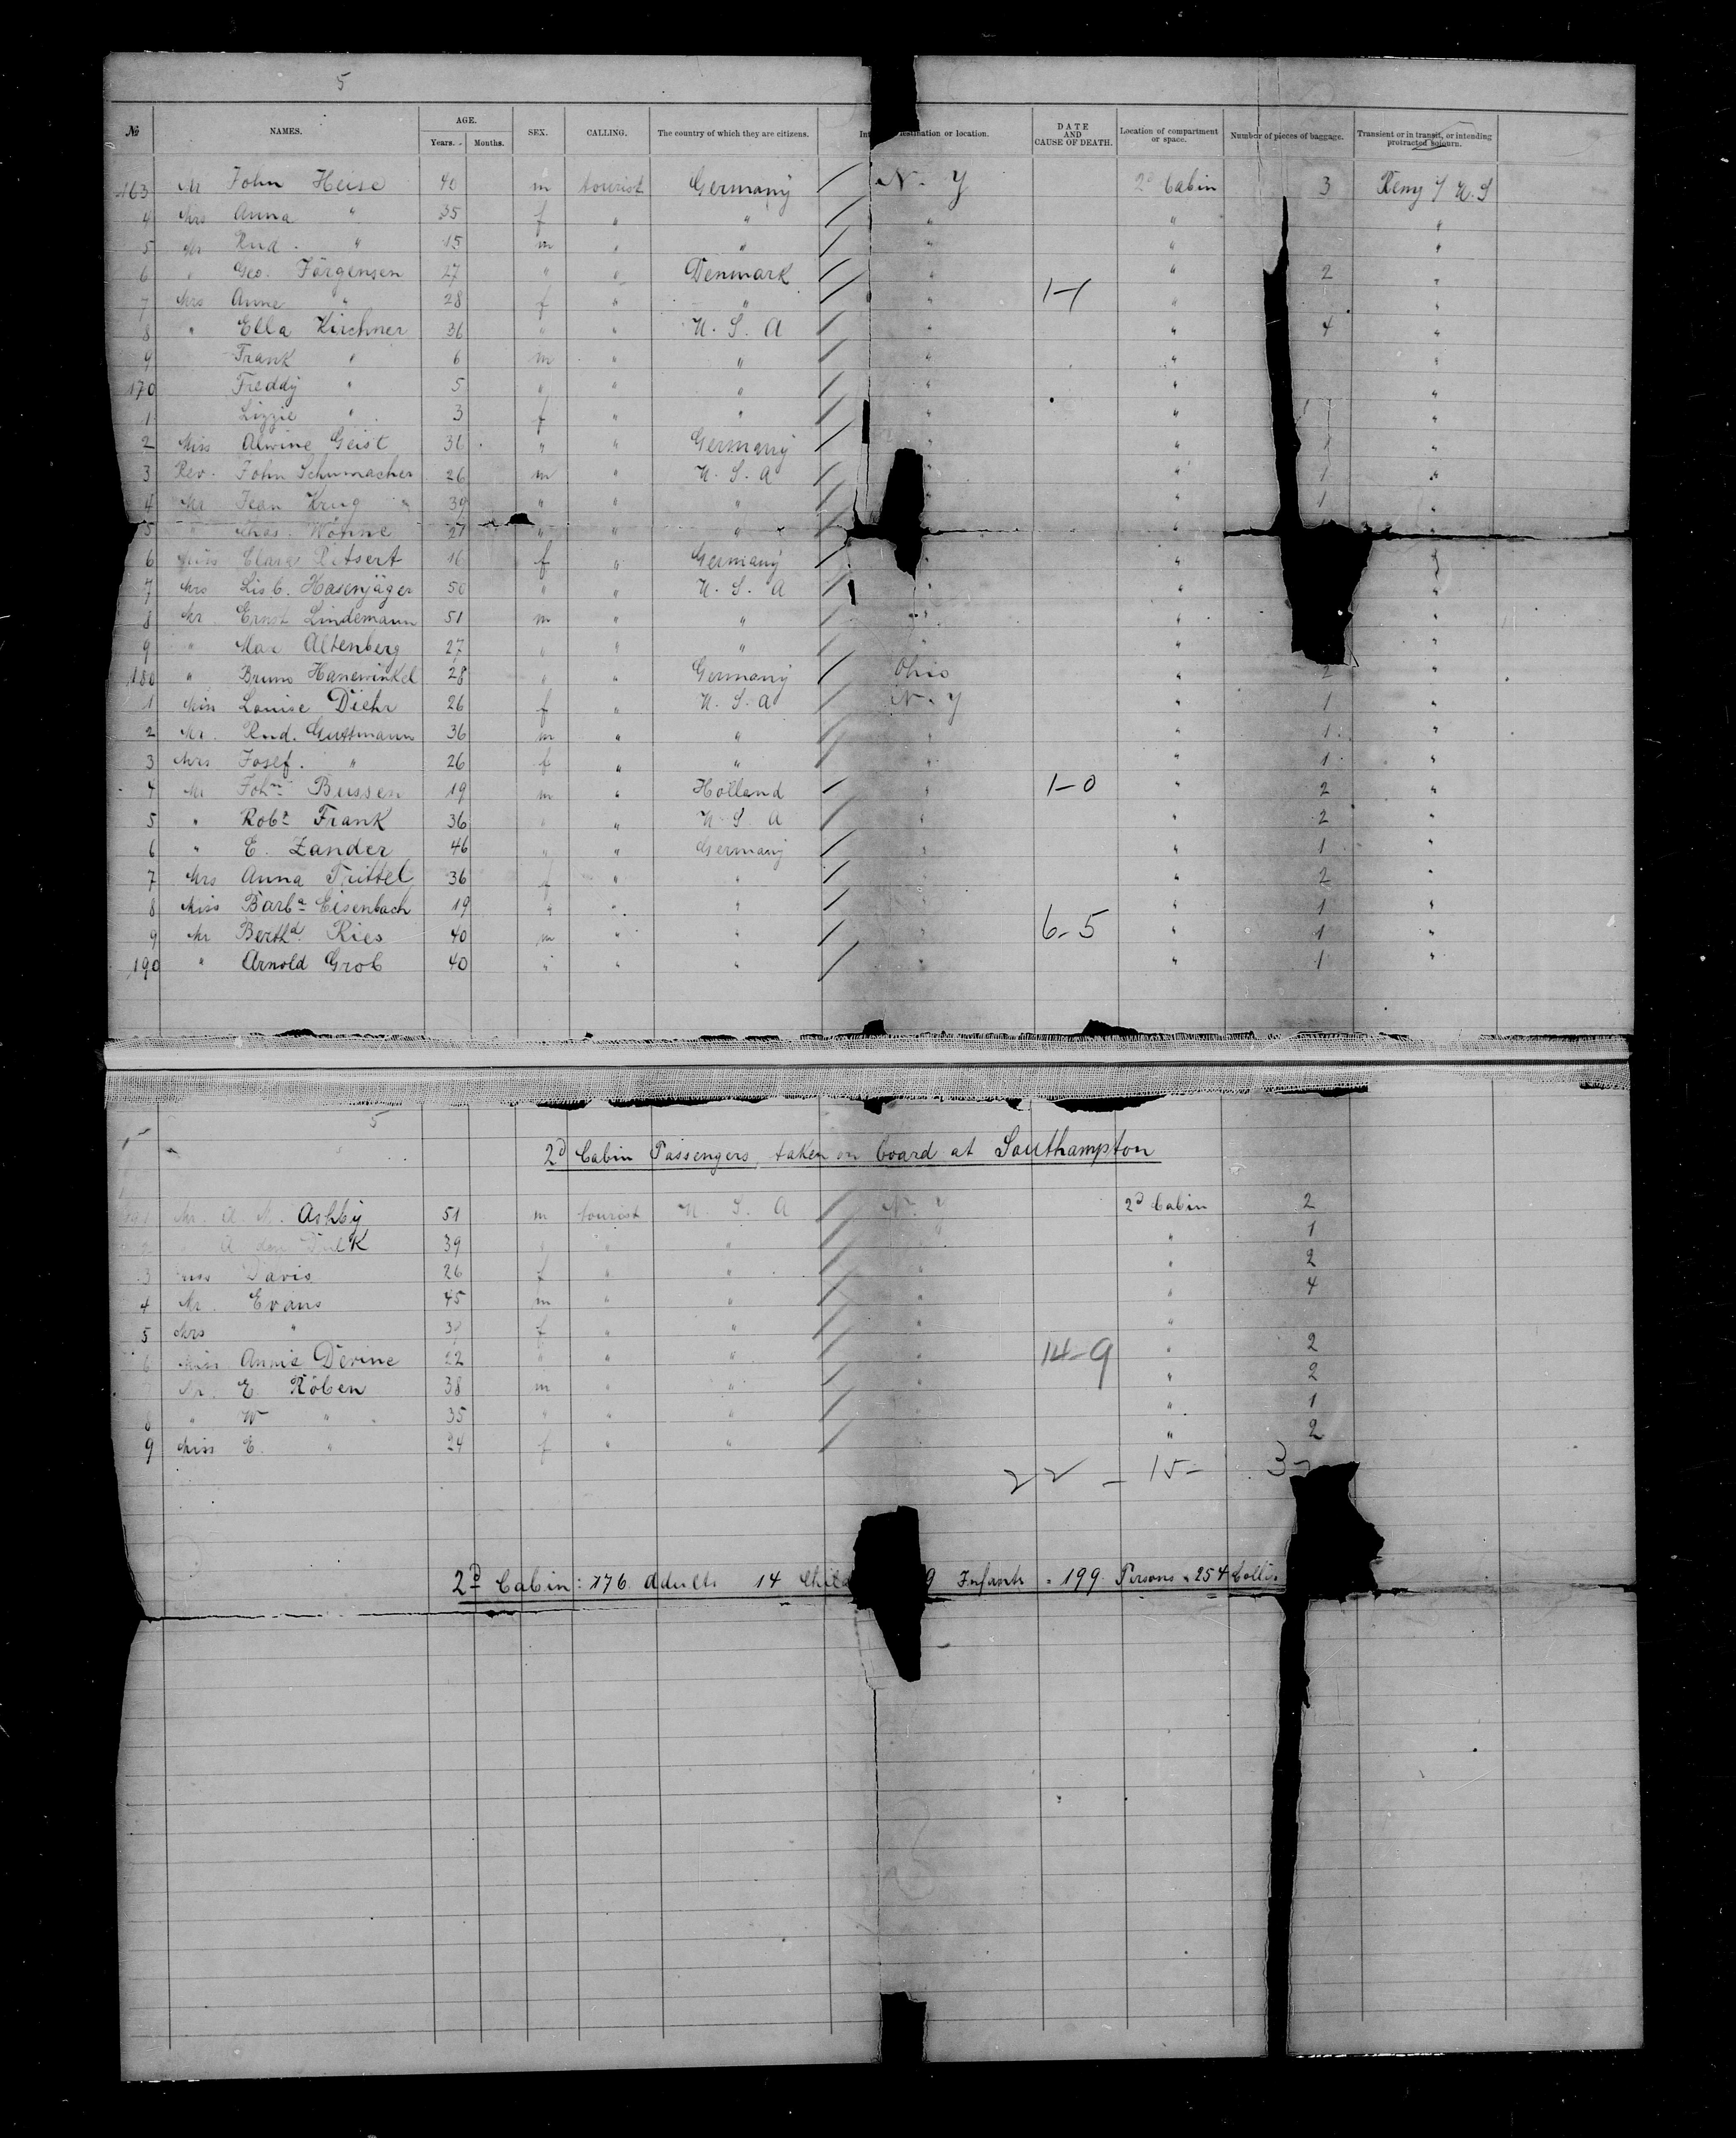 5
№ NAMES. AGE. Years. Months. SEX. CALLING. The country of which they are citizens. destination or location. DATE AND CAUSE OF DEATH. Location of compartment or space. Number of pieces of baggage. Transient or in transit, or intending protracted sojourn.
163 Mr John Heise 40 m tourist Germany / N. Y 2d Cabin 3 U. S
4 Mrs Anna " 35 f " " / " " "
5 Mr Rud. " 15 m " " / " " "
6 " Geo. Jörgensen 27 " " Denmark / " " 2 "
7 Mrs Anne " 28 f " " / " 1-1 " "
8 " Ella Kirchner 36 " " U. S. A / " " 4 "
9 Frank " 6 m " " / " " "
170 Freddy " 5 " " " / " " "
1 Lizzie " 3 f " " / " " "
2 Miss Alwine Geist 36 " " Germany / " " 1 "
3 Rev. John Schumacher 26 m " U. S. A / " " 1 "
4 Mr Jean Krug 39 " " " / " " 1 "
5 " Chas. Wönne 27 " " " / " "
6 Miss Clara 16 f " Germany / " " "
7 Mrs Lisb. Hasenjäger 50 " " U. S. A / " " "
8 Mr Ernst Lindemann 51 m " " / " " "
9 " Max Altenberg 27 " " " / " " "
180 " Bruno Hanewinkel 28 " " Germany / Ohio " 2 "
1 Miss Louise Diehr 26 f " U. S. A / N. Y " 1 "
2 Mr. Rud. Guttmann 36 m " " / " " 1 "
3 Mrs Josef. " 26 f " " / " " 1 "
4 Mr John Bussen 19 m " Holland / " 1-0 " 2 "
5 " Robt Frank 36 " " U. S. A / " " 2 "
6 " E. Zander 46 " " Germany / " " 1 "
7 Mrs Anna Trittel 36 f " " / " " 2 "
8 Miss Barba Eisenbach 19 " " " / " " 1 "
9 Mr Berthd. Ries 40 m " " / " 6-5 " 1 "
190 " Arnold Grob 40 " " " / " " 1 "
5
2d Cabin Passengers, taken on board at Southampton
Mr. A. Ashby 51 m tourist U. S. A / N. Y 2d Cabin 2
A 39 " " " / " " 1
3 Miss Davis 26 f " " / " " 2
4 Mr. Evans 45 m " " / " " 4
5 Mrs " f " " / " "
6 Miss Annie Devine 22 " " " / " 14-9 " 2
Mr. E. Röben 38 m " " / " " 2
8 " W " 35 " " " / " 1
9 Miss E. " 24 f " " / " 2
22 - 15 - 3
2d Cabin: 176 Adults 14 9 Infants = 199 Persons 254 Colli.